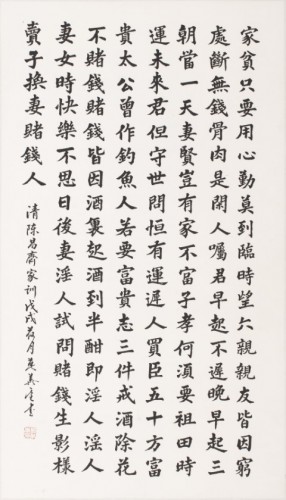 家貧只要用心勤莫到臨時望六親親友皆因窮
處斷無錢骨肉是閑人囑君早起不遲晚早起三
朝當一天妻賢豈有家不富子孝何須要祖田時
運未來君但守世間恒有運遲人買臣五十方富
貴太公曾作釣魚人若要富貴志三件戒酒除花
不賭錢賭錢皆因酒裏起酒到半酣即淫人淫人
妻女時快樂不思日後妻淫人試問賭錢生影樣
賣子換妻賭錢人
清陳昌齋家訓戊戌荷月書